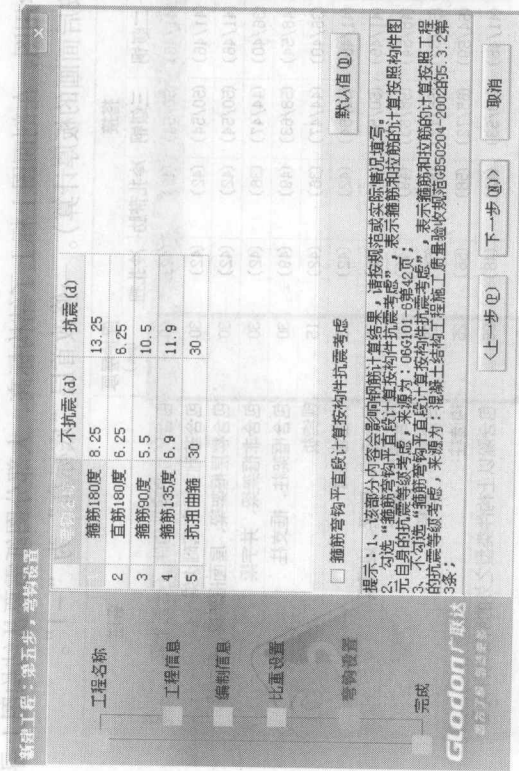 新建工程：第五步，弯钩设置
工程名称
工程信息
编制信息
比重设置
弯钩设置
完成
GLodon广联达
不抗震(d) 抗震(d)
1 箍筋180度 8.25 13.25
2 直筋180度 6.25 6.25
3 箍筋90度 5.5 10.5
4 箍筋135度 6.9 11.9
5 抗扭曲箍 30 30
箍筋弯钩平直段计算按构件抗震考虑
默认值(D)
提示：1、该部分内容会影响钢筋计算结果，请按规范或实际情况填写。
2、勾选“箍筋弯钩平直段计算按构件抗震考虑”，表示箍筋和拉筋的计算按照构件图
元自身的抗震等级考虑，来源为：06G101-6第42页；
3、不勾选“箍筋弯钩平直段计算按构件抗震考虑”，表示箍筋和拉筋的计算按照工程
的抗震等级考虑，来源为：混凝土结构工程施工质量验收规范GB50204-2002的5.3.2第
3条；
<上一步(P)
下一步(N)>
取消